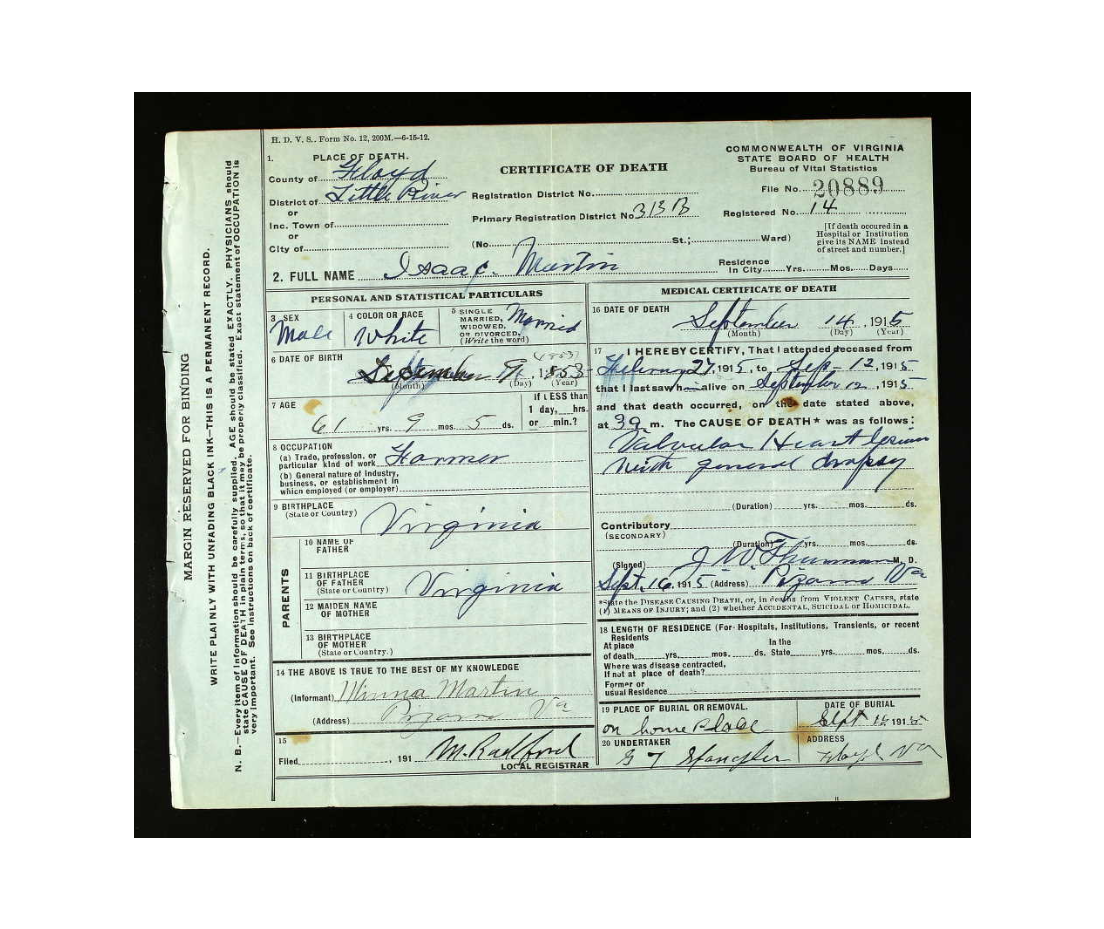 H. D. V. S.. Form No. 12, 200M.—6-15-12.
1. PLACE OF DEATH.
County of Floyd
District of Little River
or
Inc. Town of
or
City of
CERTIFICATE OF DEATH
Registration District No.
Primary Registration District No 313 B
(No. St.; Ward)
COMMONWEALTH OF VIRGINIA
STATE BOARD OF HEALTH
Bureau of Vital Statistics
File No. 20889
Registered No. 14
[If death occured in a
Hospital or Institution
give its NAME instead
of street and number.]
2. FULL NAME Isaac Martin
Residence
In City Yrs. Mos. Days
PERSONAL AND STATISTICAL PARTICULARS
3 SEX
Male
4 COLOR OR RACE
White
5 SINGLE
MARRIED,
WIDOWED,
OR DIVORCED.
(Write the word)
Married
6 DATE OF BIRTH
(Month) (Day) (Year)
9 1853
7 AGE
61 yrs. 9 mos. 5 ds.
if LESS than
1 day, hrs.
or min.?
8 OCCUPATION
(a) Trade, profession, or
particular kind of work Farmer
(b) General nature of Industry,
business, or establishment in
which employed (or employer)
9 BIRTHPLACE
(State or Country)
Virginia
PARENTS
10 NAME OF
FATHER
11 BIRTHPLACE
OF FATHER
(State or Country)
Virginia
12 MAIDEN NAME
OF MOTHER
13 BIRTHPLACE
OF MOTHER
(State or Country.)
14 THE ABOVE IS TRUE TO THE BEST OF MY KNOWLEDGE
(Informant) Martin
(Address) Va
15
Filed , 191 M. Radford
LOCAL REGISTRAR
MEDICAL CERTIFICATE OF DEATH
16 DATE OF DEATH
September 14, 1915
(Month) (Day) (Year)
17 I HEREBY CERTIFY, That I attended deceased from
27, 1915, to Sep- 12, 1915
that I last saw h alive on September 12, 1915
and that death occurred, on the date stated above,
at 3 a m. The CAUSE OF DEATH* was as follows:
Valvular Heart lesion
with general dropsy
(Duration) yrs. mos. ds.
Contributory
(SECONDARY)
(Duration) yrs. mos. ds.
(Signed) J. W. Thurman M. D.
Sept. 16 1915 (Address) Va
*State the DISEASE CAUSING DEATH, or, in deaths from VIOLENT CAUSES, state
(1) MEANS OF INJURY; and (2) whether ACCIDENTAL, SUICIDAL or HOMICIDAL.
18 LENGTH OF RESIDENCE (For Hospitals, Institutions, Transients, or recent
Residents
At place In the
of death yrs. mos. ds. State yrs. mos. ds.
Where was disease contracted,
If not at place of death?
Former or
usual Residence
19 PLACE OF BURIAL OR REMOVAL.
on home place
DATE OF BURIAL
Sept 16 1915
20 UNDERTAKER
G T Spangler
ADDRESS
Floyd Va
MARGIN RESERVED FOR BINDING
WRITE PLAINLY WITH UNFADING BLACK INK—THIS IS A PERMANENT RECORD.
N. B.—Every item of information should be carefully supplied. AGE should be stated EXACTLY. PHYSICIANS should
state CAUSE OF DEATH in plain terms, so that it may be properly classified. Exact statement of OCCUPATION is
very important. See instructions on back of certificate.